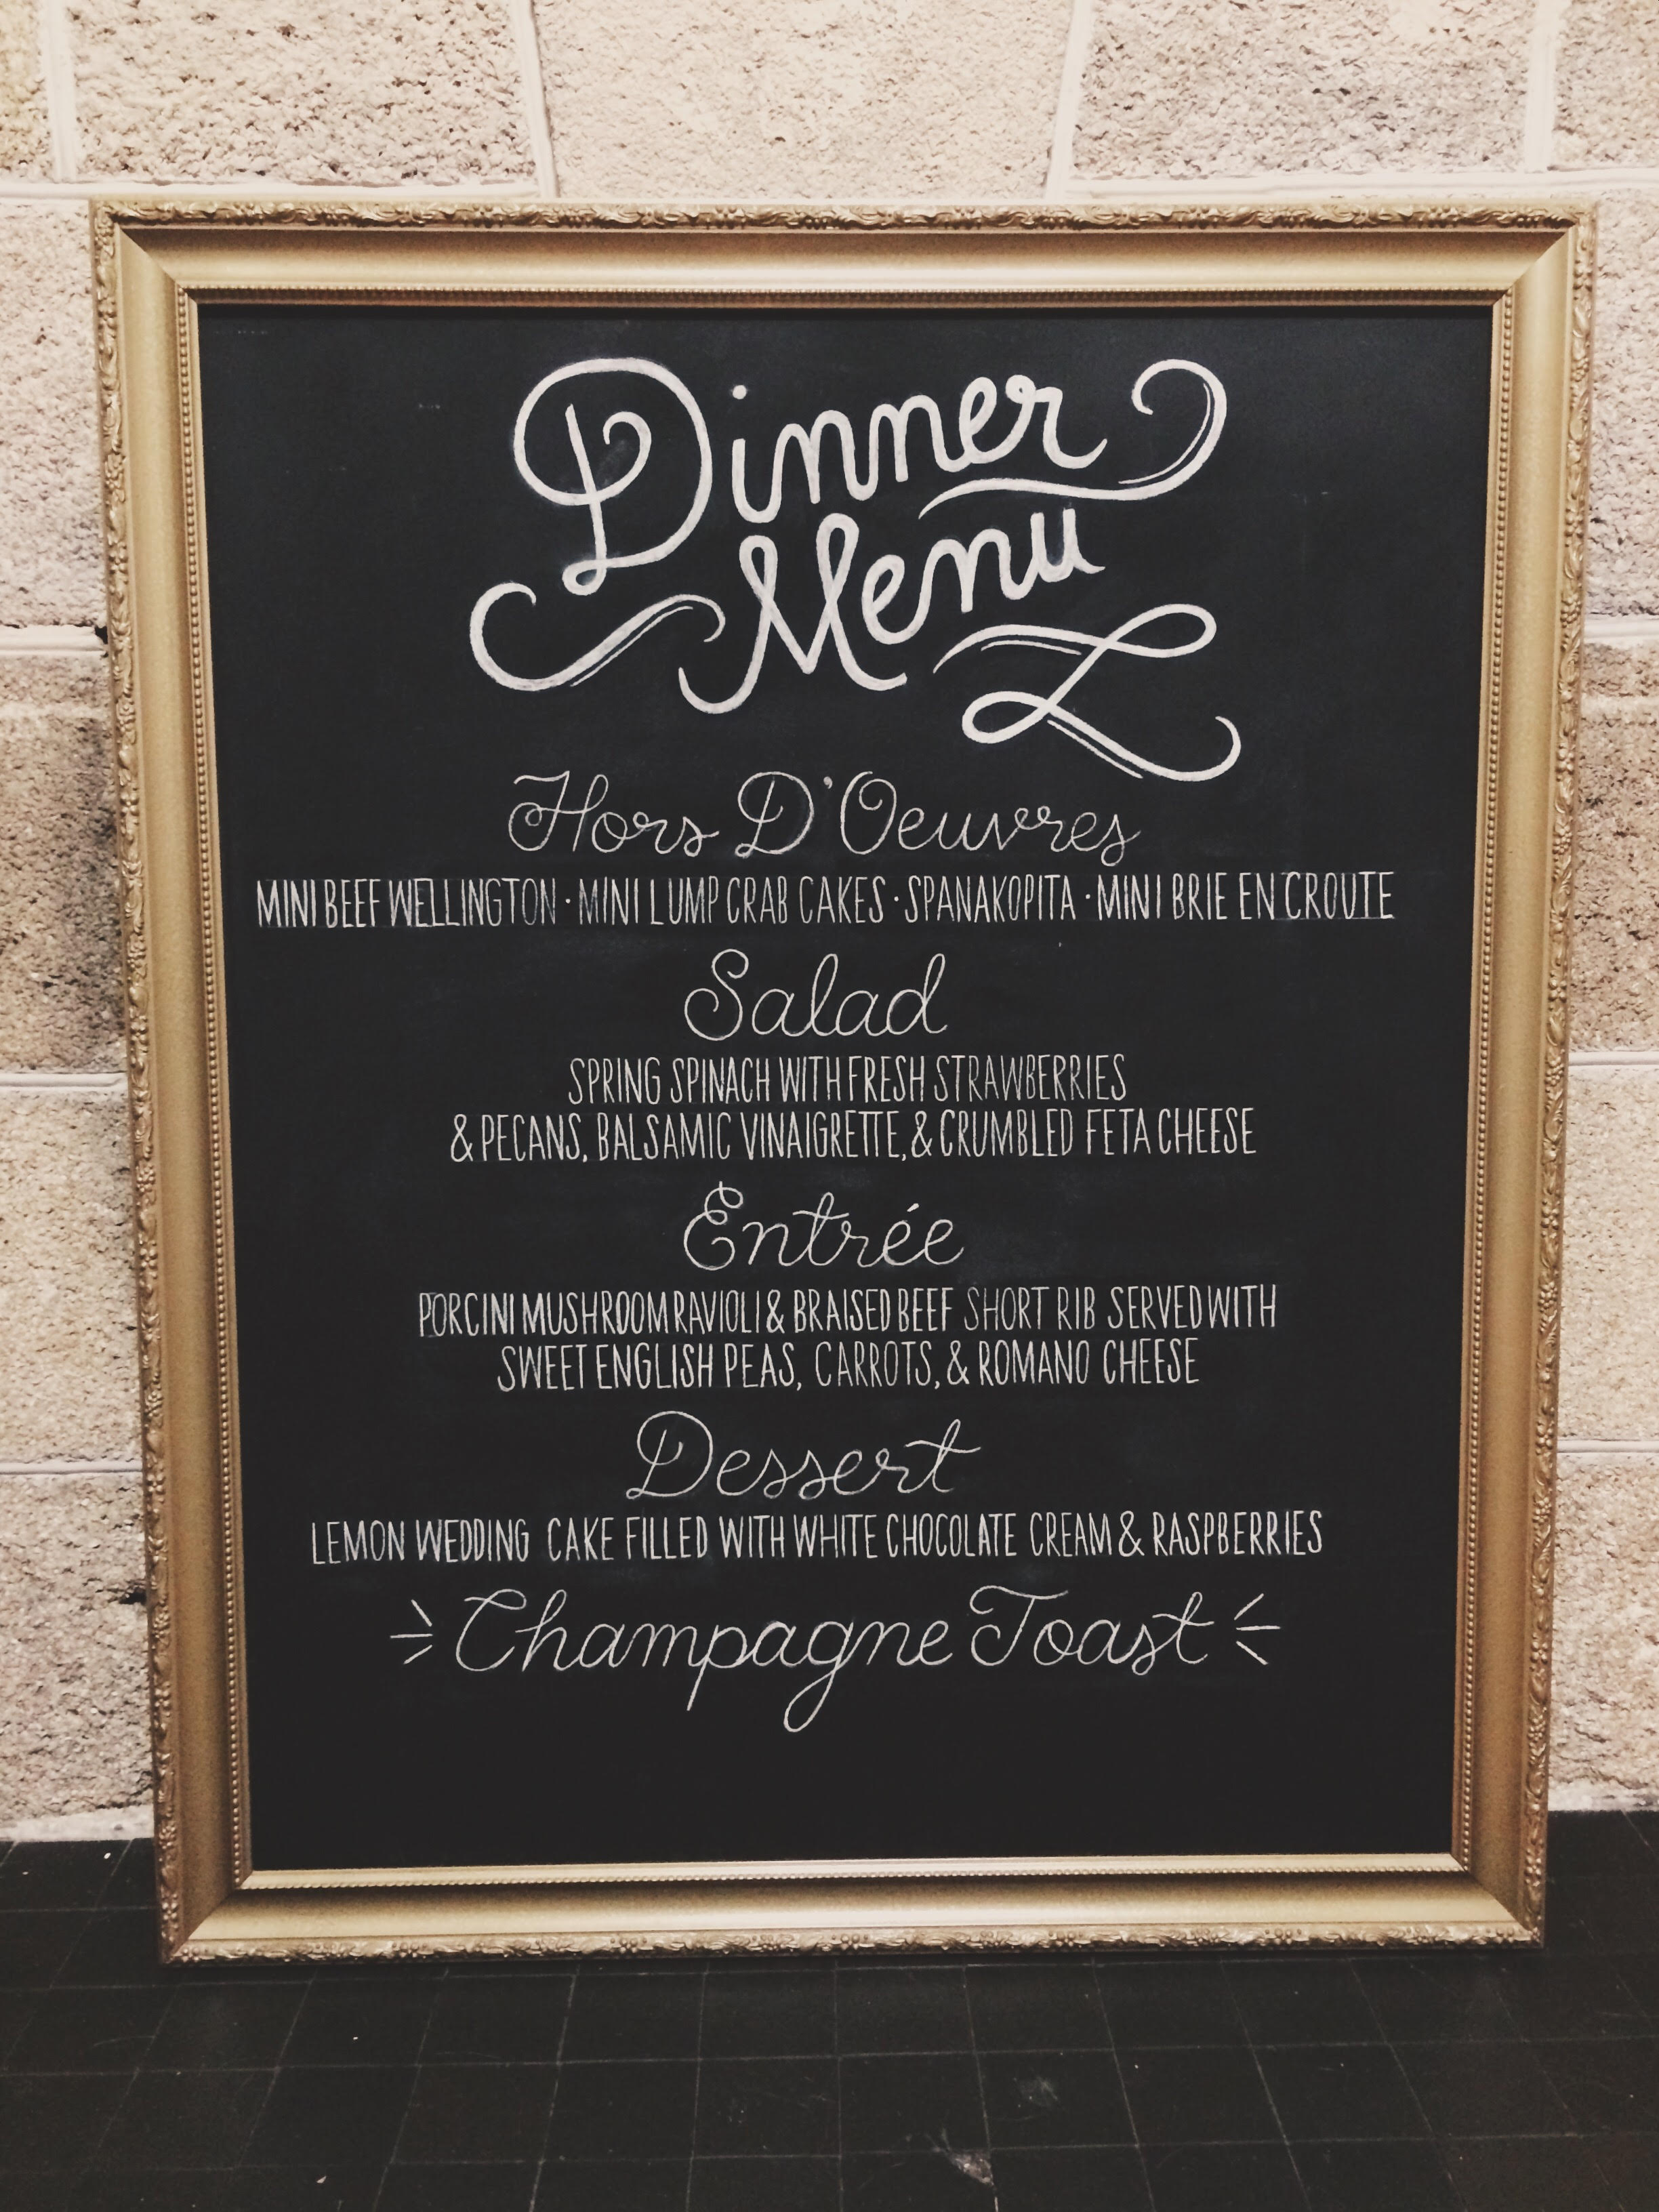 Dinner
Menu
Hors D'Oeuvres
MINI BEEF WELLINGTON · MINI LUMP CRAB CAKES · SPANAKOPITA · MINI BRIE EN CROUTE
Salad
SPRING SPINACH WITH FRESH STRAWBERRIES
& PECANS, BALSAMIC VINAIGRETTE, & CRUMBLED FETA CHEESE
Entrée
PORCINI MUSHROOM RAVIOLI & BRAISED BEEF SHORT RIB SERVED WITH
SWEET ENGLISH PEAS, CARROTS, & ROMANO CHEESE
Dessert
LEMON WEDDING CAKE FILLED WITH WHITE CHOCOLATE CREAM & RASPBERRIES
Champagne Toast